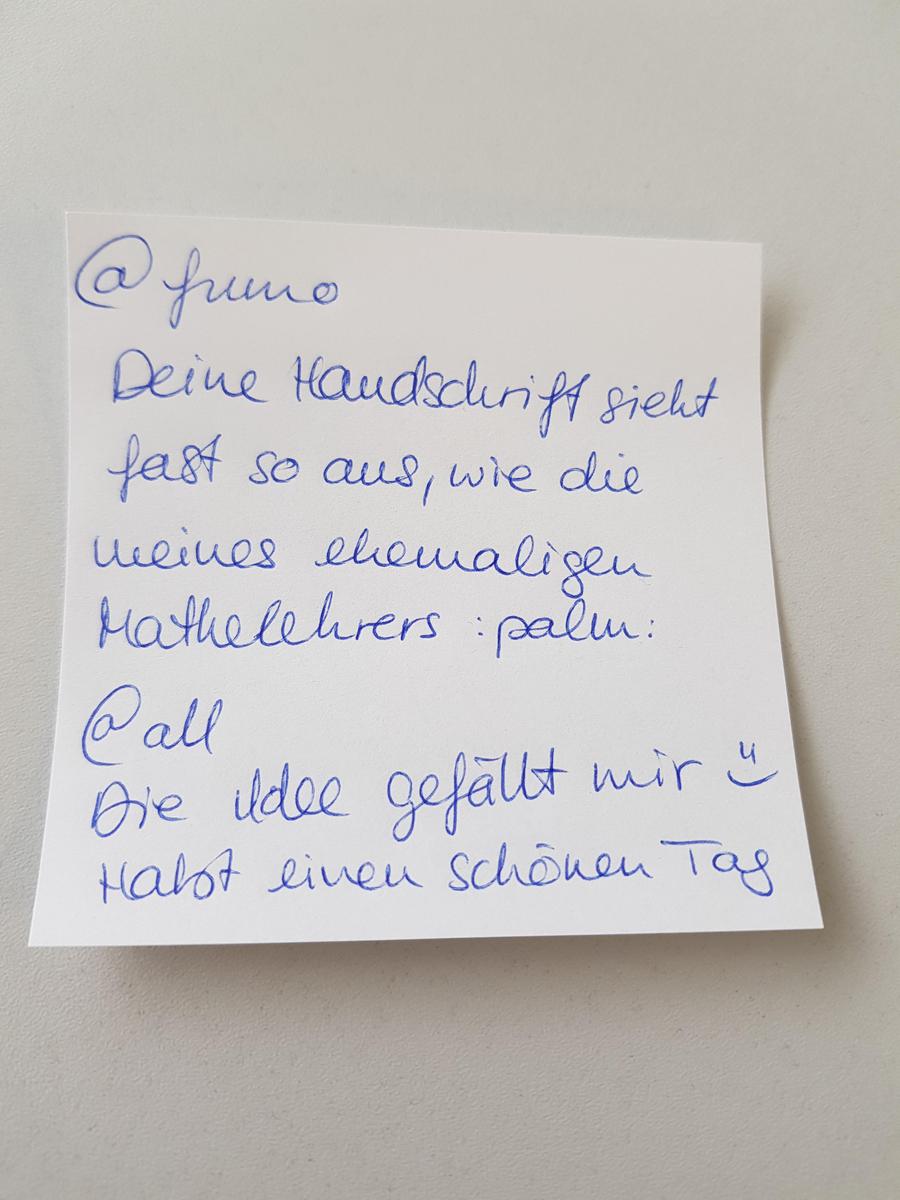 @
Deine Handschrift sieht
fast so aus, wie die
meines ehemaligen
Mathelehrers :palm:
@all
Die Idee gefällt mir ü
Habt einen schönen Tag